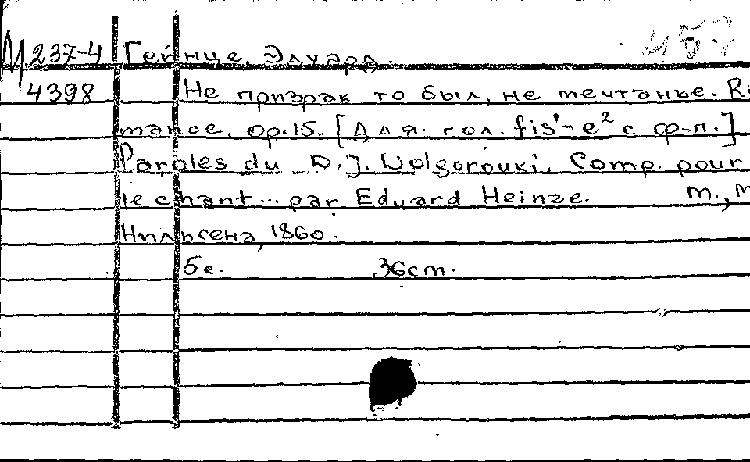 М 237-4 Гейнце, Эдуард
4398 Не призрак то был, не мечтанье. Ro
mance. op.15. [Для гол. fis¹-e² с ф-п.]
Paroles du D.J. Dolgorouki. Comp. pour
le chant... par Eduard Heinze. М.,
Нильсена, 1860.
6с. 36cm.